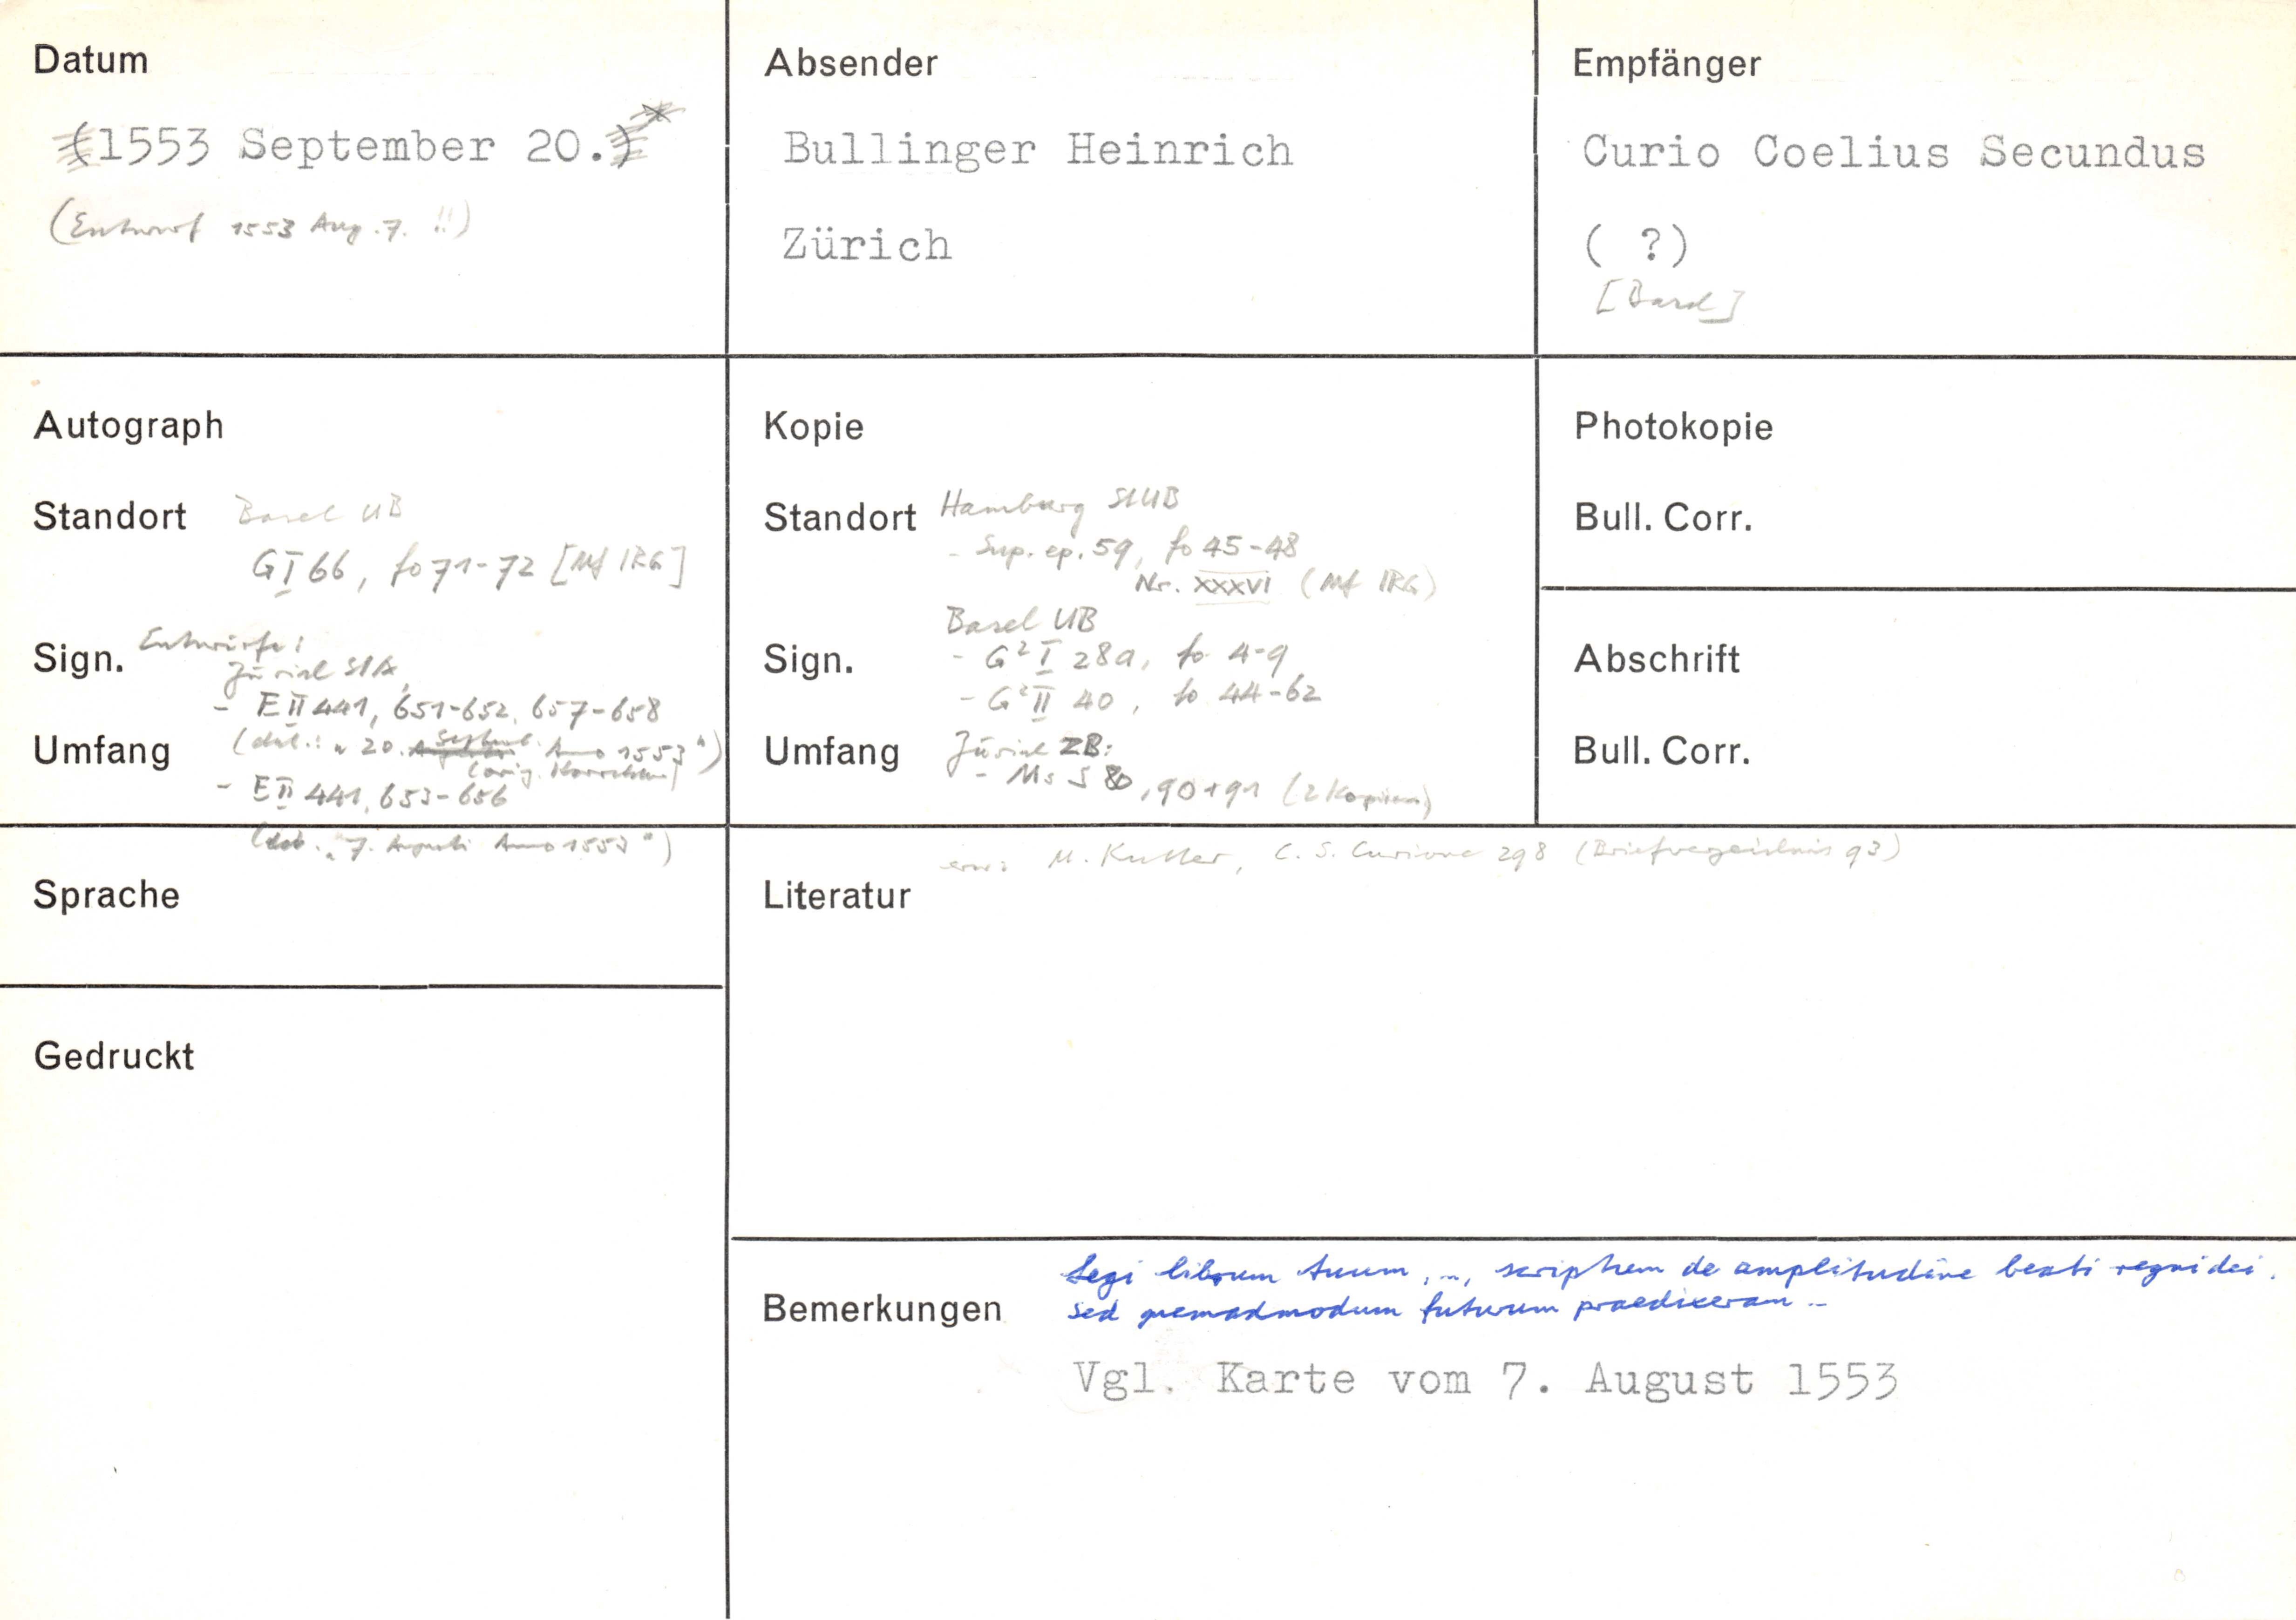 Datum
(1553 September 20.)*
(Entwurf 1553 Aug. 7. !!)
Absender
Bullinger Heinrich
Zürich
Empfänger
Curio Coelius Secundus
( ?)
[Basel]
Autograph
Standort Basel UB
G I 66, fo 71-72 [Mf IRG]
Sign. Entwürfe:
Zürich StA,
- E II 441, 651-652, 657-658
Umfang (dat.: "20. Septemb. Anno 1553")
(orig. Korrektur)
- E II 441, 653-656
(dat. "7. Augusti Anno 1553")
Kopie
Standort Hamburg SUB
- Sup. ep. 59, fo 45-48
Nr. XXXVI (Mf IRG)
Basel UB
Sign. - G² I 28a, fo 4-9
- G² II 40, fo 44-62
Umfang Zürich ZB:
- Ms S 80, 90+91 (2 Kopien)
Photokopie
Bull. Corr.
Abschrift
Bull. Corr.
Sprache
Gedruckt
erw: M. Kutter, C. S. Curione 298 (Briefverzeichnis 93)
Literatur
Legi librum tuum, ..., scriptum de amplitudine beati regni dei.
sed quemadmodum futurum praedixeram ..
Bemerkungen
Vgl. Karte vom 7. August 1553